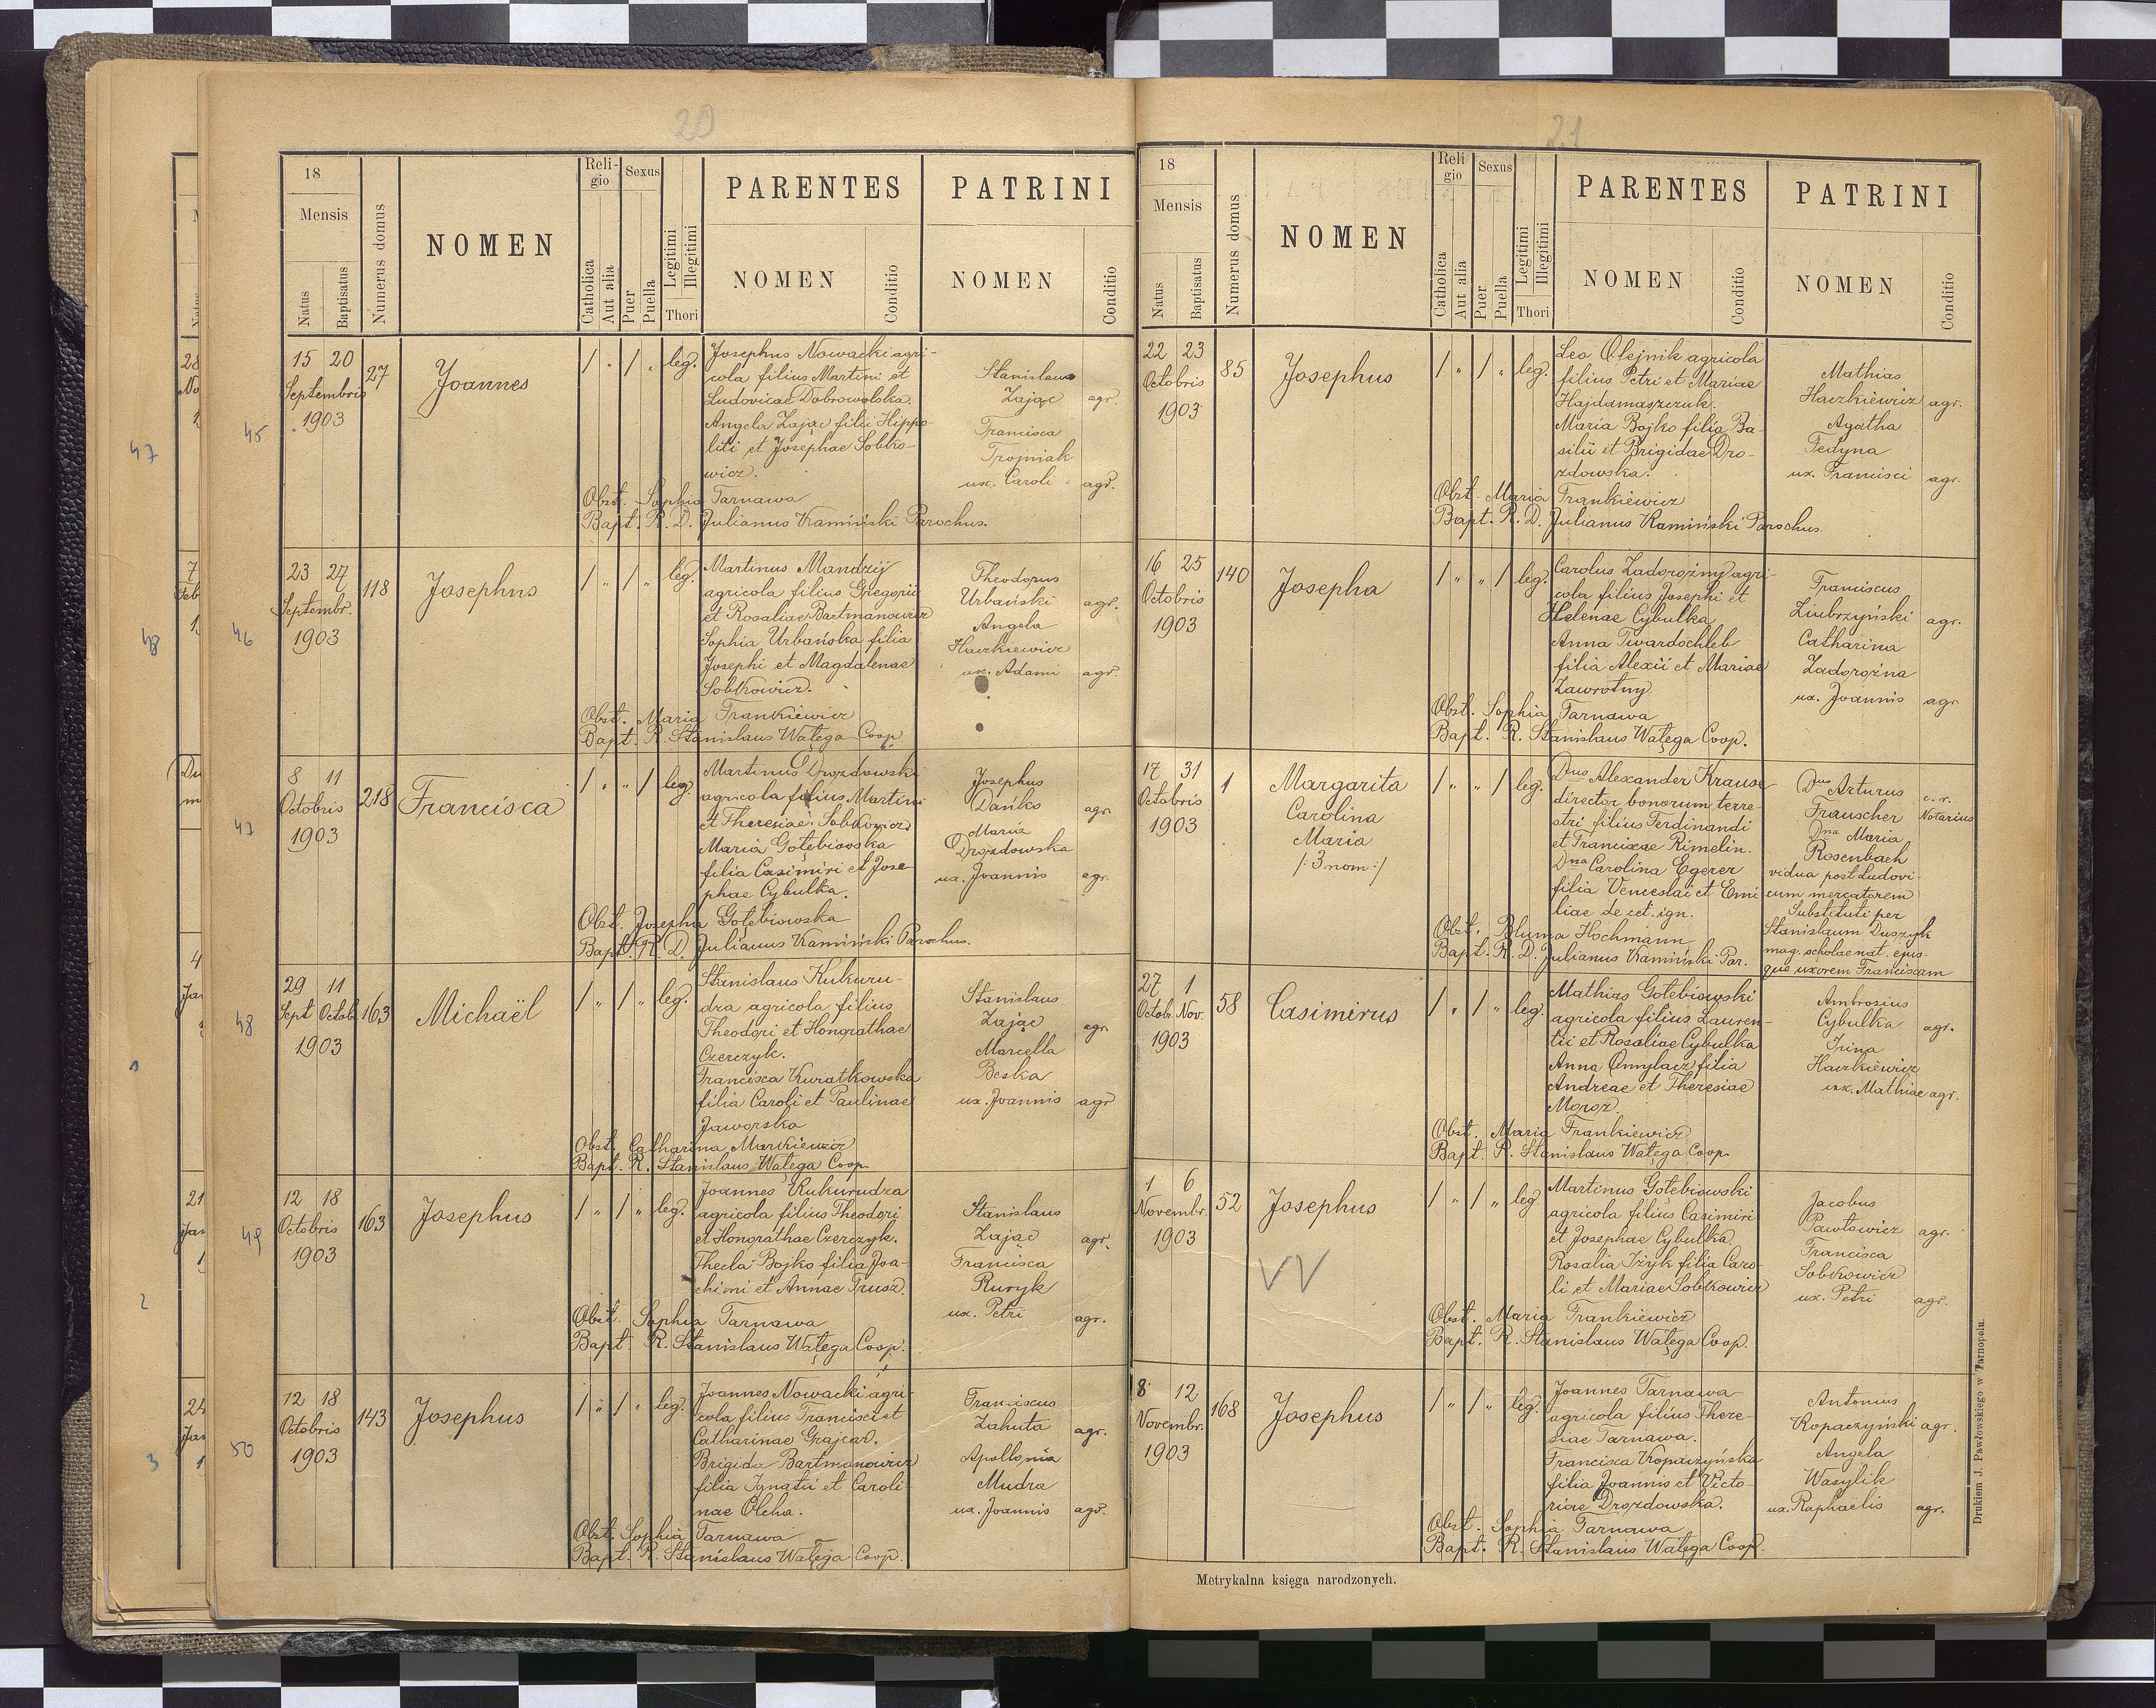 20
18
Mensis
Natus
Baptisatus
Numerus domus
NOMEN
Reli-
gio
Catholica
Aut alia
Sexus
Puer
Puella
Legitimi
Illegitimi
Thori
PARENTES
NOMEN
Conditio
PATRINI
NOMEN
Conditio
45
15 20
Septembris
1903
27
Joannes
/ " / " leg.
Josephus Nowacki agri-
cola filius Martini et
Ludovicae Dobrowolska.
Angela Zając filii Hippo
liti et Josephae Sobko-
wicz.
Stanislaus
Zając agr.
Francisca
Trojniak
ux. Caroli agr.
Obst. Sophia Tarnawa
Bapt. R. D. Julianus Kamiński Parochus.
46
23 27
Septembr.
1903
118
Josephus
/ " / " leg.
Martinus Mandzij
agricola filius Gregorii
et Rosaliae Bartmanowicz
Sophia Urbańska filia
Josephi et Magdalenae
Sobkowicz.
Theodorus
Urbański agr.
Angela
Haczkiewicz
ux. Adami agr.
Obst. Maria Frankiewicz
Bapt. R. Stanislaus Wałęga Coop.
47
8 11
Octobris
1903
218
Francisca
/ " " / leg.
Martinus Drozdowski
agricola filius Martini
et Theresiae Sobkowicz
Maria Gołębiowska
filia Casimiri et Jose-
phae Cybulka.
Josephus
Dańko agr.
Maria
Drozdowska
ux. Joannis agr.
Obst. Josepha Gołębiowska
Bapt. R. D. Julianus Kamiński Parochus.
48
29 11
Sept Octob.
1903
163
Michaël
/ " / " leg.
Stanislaus Kukuru-
dza agricola filius
Theodori et Honorathae
Czerczyk.
Francisca Kuratkowska
filia Caroli et Paulinae
Jaworska
Stanislaus
Zając agr.
Marcella
Beska
ux. Joannis agr
Obst. Catharina Markiewicz
Bapt. R. Stanislaus Wałęga Coop.
49
12 18
Octobris
1903
163
Josephus
/ " / " leg.
Joannes Kukurudza
agricola filius Theodori
et Honorathae Czerczyk.
Thecla Bojko filia Joa-
chimi et Annae Trusz.
Stanislaus
Zając agr.
Francisca
Ruryk
ux. Petri agr.
Obst. Sophia Tarnawa
Bapt. R. Stanislaus Wałęga Coop.
50
12 18
Octobris
1903
143
Josephus
/ " / " leg.
Joannes Nowacki agri-
cola filius Francisci et
Catharinae Grajcar.
Brigida Bartmanowicz
filia Ignatii et Caroli-
nae Olcha.
Franciscus
Zahuta agr.
Apollonia
Mudra
ux. Joannis agr.
Obst. Sophia Tarnawa
Bapt. R. Stanislaus Wałęga Coop.
47
48
1
2
3
21
18
Mensis
Natus
Baptisatus
Numerus domus
NOMEN
Reli
gio
Catholica
Aut alia
Sexus
Puer
Puella
Legitimi
Illegitimi
Thori
PARENTES
NOMEN
Conditio
PATRINI
NOMEN
Conditio
22 23
Octobris
1903
85
Josephus
/ " / " leg.
Leo Olejnik agricola
filius Petri et Mariae
Hajdamaszczuk.
Maria Bojko filia Ba-
silii et Brigidae Dro-
zdowska.
Mathias
Haczkiewicz agr.
Agatha
Fedyna
ux. Francisci agr.
Obst. Maria Frankiewicz
Bapt. R. D. Julianus Kamiński Parochus.
16 25
Octobris
1903
140
Josepha
/ " " / leg.
Carolus Zadorożny agri-
cola filius Josephi et
Helenae Cybulka
Anna Twardochleb
filia Alexii et Mariae
Zawrotny.
Franciscus
Ziubrzyński agr.
Catharina
Zadorożna
ux. Joannis agr
Obst. Sophia Tarnawa
Bapt. R. Stanislaus Wałęga Coop.
17 31
Octobris
1903
1
Margarita
Carolina
Maria
/: 3 nom :/
/ " " / leg.
Dnus Alexander Krause
director bonorum terre-
stri filius Ferdinandi
et Franciscae Rimelin.
Dna Carolina Egerer
filia Venceslai et Emi
liae de cet. ign.
Dnus Arturus c. r.
Frauscher Notarius
Dna Maria
Rosenbach
vidua post Ludovi-
cum mercatorem
Substituti per
Stanislaum Duszyk
mag. scholae nat. ejus-
que uxorem Franciscam
Obst. Bluma Hochmann
Bapt. R. D. Julianus Kamiński Par.
27 1
Octobr. Nov.
1903
58
Casimirus
/ " / " leg.
Mathias Gołębiowski
agricola filius Lauren-
tii et Rosaliae Cybulka
Anna Onnylacz filia
Andreae et Theresiae
Moroz.
Ambrosius
Cybulka agr.
Irina
Haczkiewicz
ux. Mathiae agr.
Obst. Maria Frankiewicz
Bapt. R. Stanislaus Wałęga Coop.
1 6
Novembr.
1903
52
Josephus
VV
/ " / " leg
Martinus Gołębiowski
agricola filius Casimiri
et Josephae Cybulka
Rosalia Iżyk filia Caro-
li et Mariae Sobkowicz
Jacobus
Pawłowicz agr.
Francisca
Sobkowicz
ux. Petri agr.
Obst. Maria Frankiewicz
Bapt. R. Stanislaus Wałęga Coop.
8 12
Novembr.
1903
168
Josephus
/ " / " leg.
Joannes Tarnawa
agricola filius There-
siae Tarnawa.
Francisca Kopaczyńska
filia Joannis et Victo-
riae Drozdowska.
Antonius
Kopaczyński agr.
Angela
Wasylik
ux. Raphaelis agr.
Obst. Sophia Tarnawa
Bapt. R. Stanislaus Wałęga Coop.
Metrykalna księga narodzonych.
Drukiem J. Pawłowskiego w Tarnopolu.